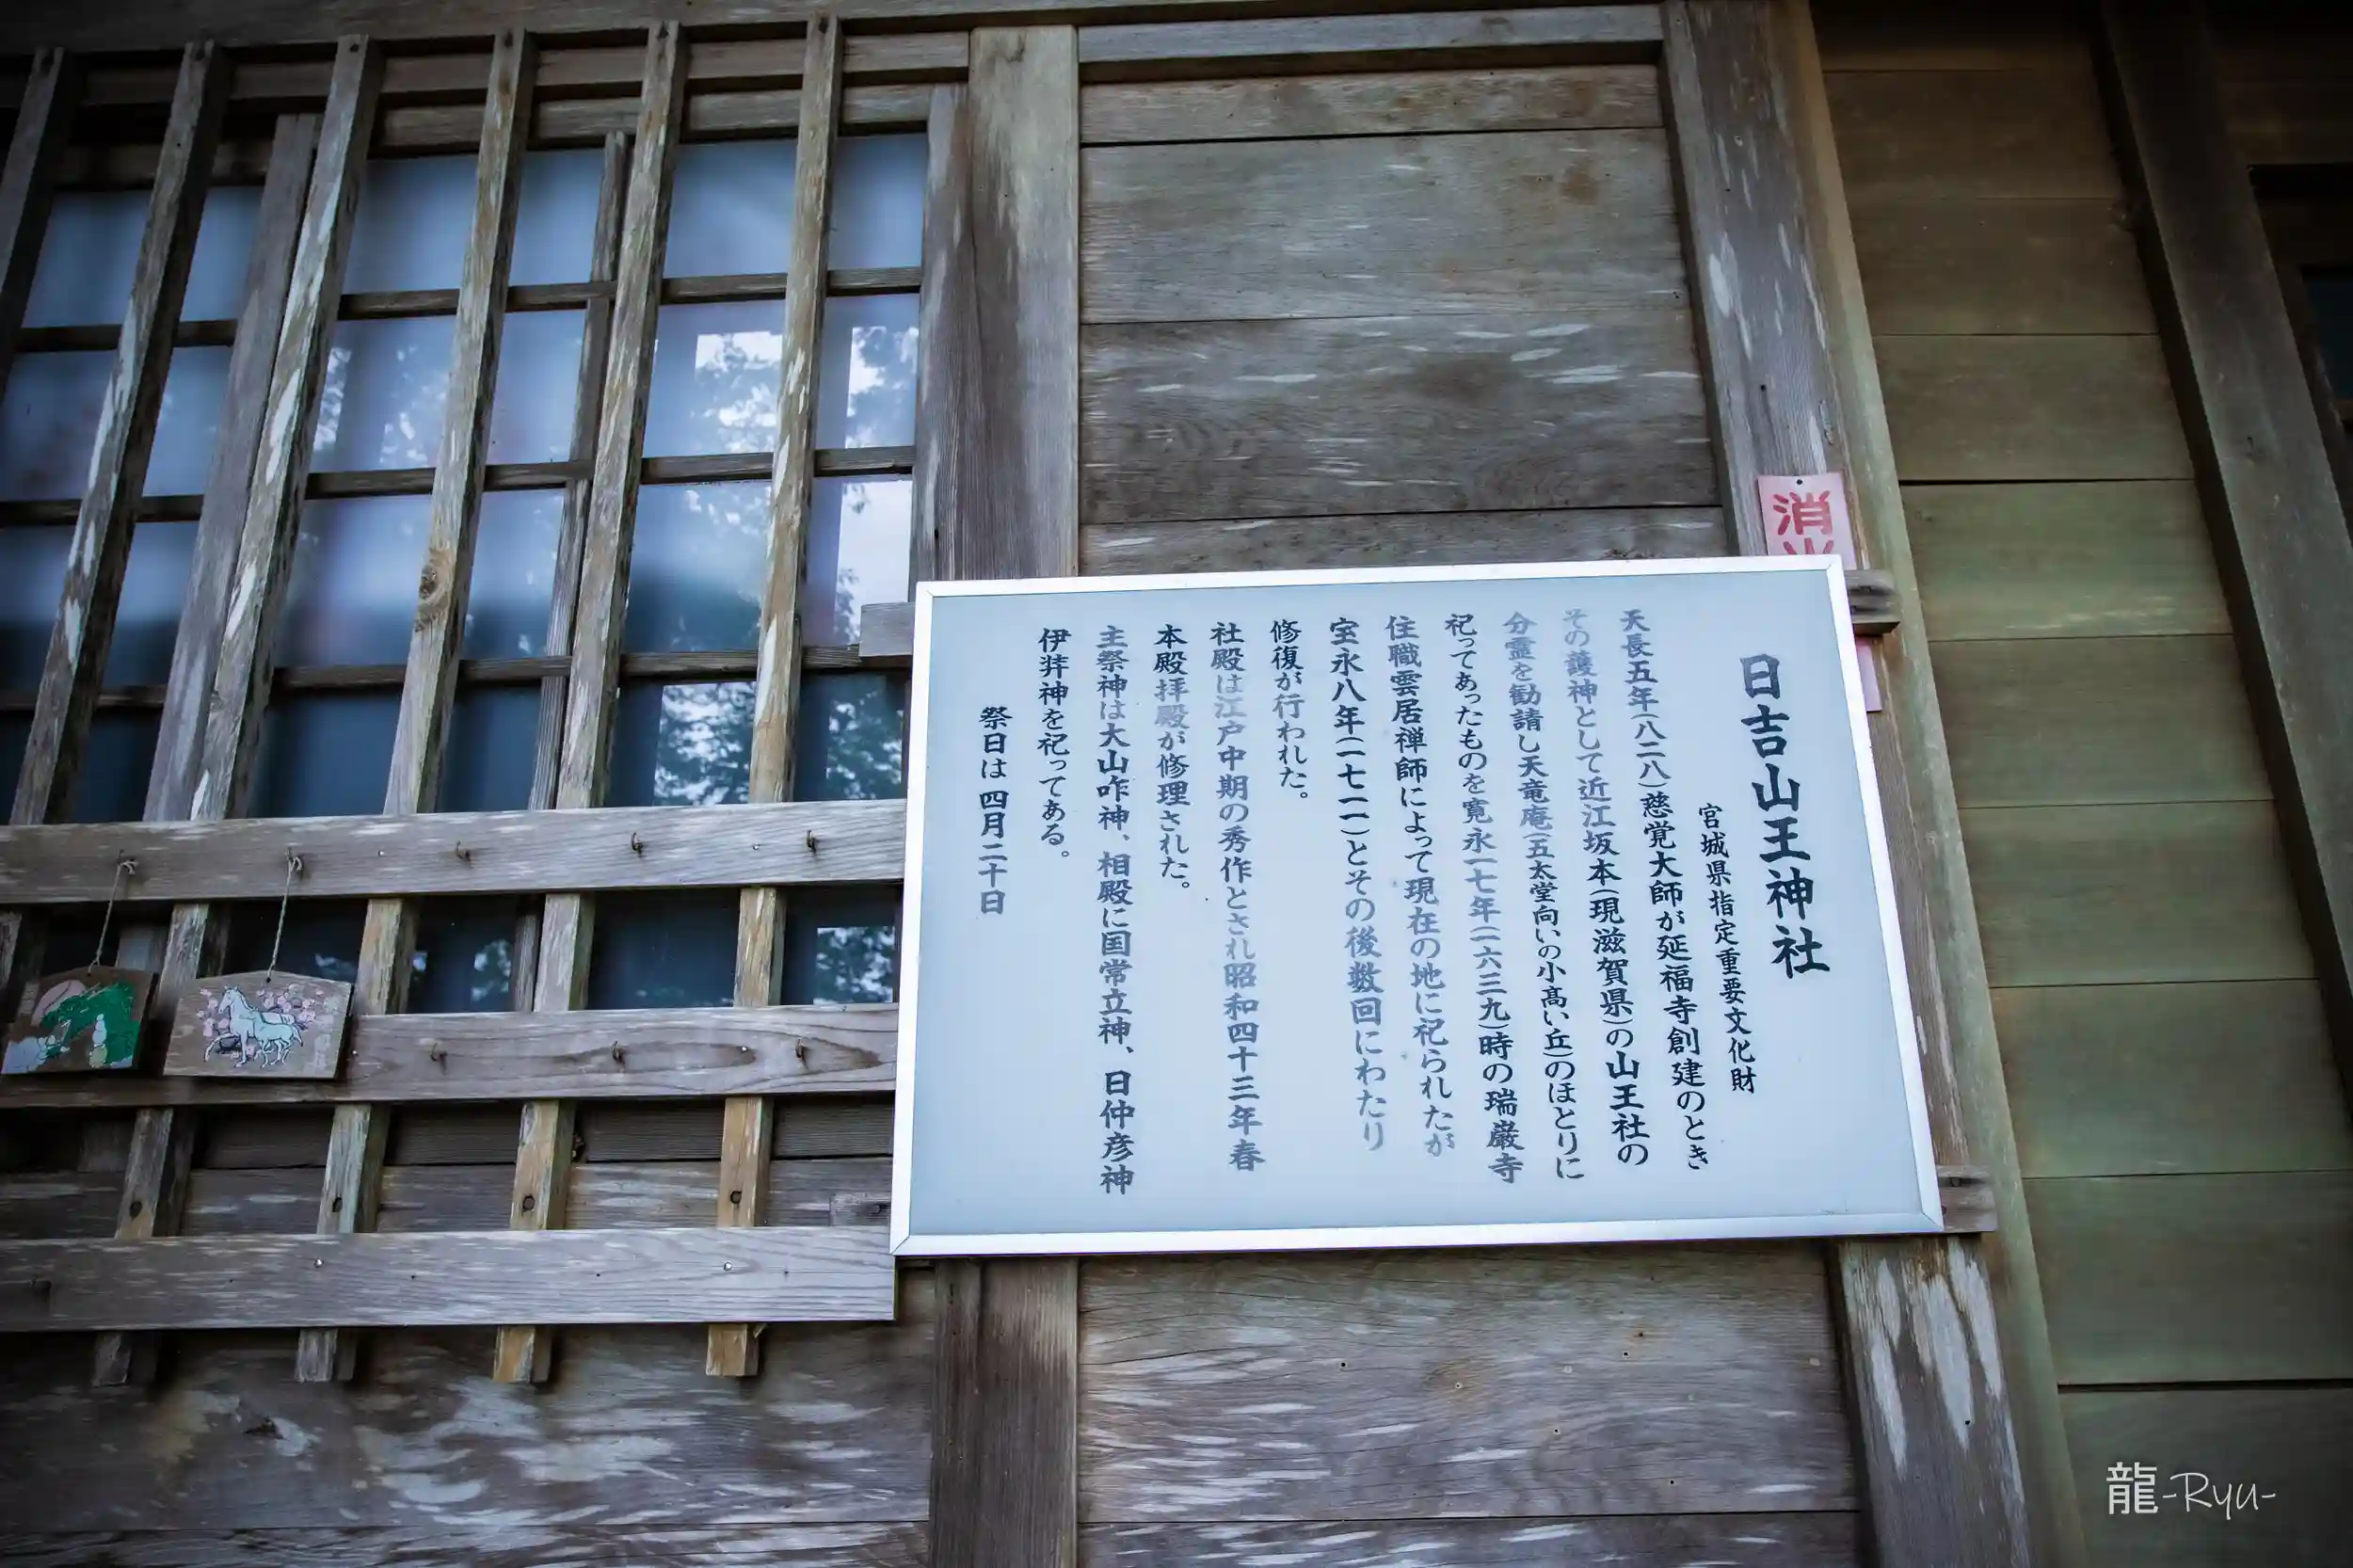 日吉山王神社
宮城県指定重要文化財
天長五年(八二八)慈覚大師が延福寺創建のとき
その護神として近江坂本(現滋賀県)の山王社の
分霊を勧請し天竜庵(五太堂向いの小高い丘)のほとりに
祀ってあったものを寛永一七年(一六三九)時の瑞巌寺
住職雲居禅師によって現在の地に祀られたが
宝永八年(一七一一)とその後数回にわたり
修復が行われた。
社殿は江戸中期の秀作とされ昭和四十三年春
本殿拝殿が修理された。
主祭神は大山咋神、相殿に国常立神、日仲彦神
伊弉神を祀ってある。
祭日は 四月二十日
消
龍-Ryu-